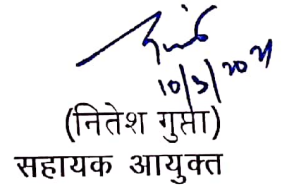 10/3/2021
(नितेश गुप्ता)
सहायक आयुक्त